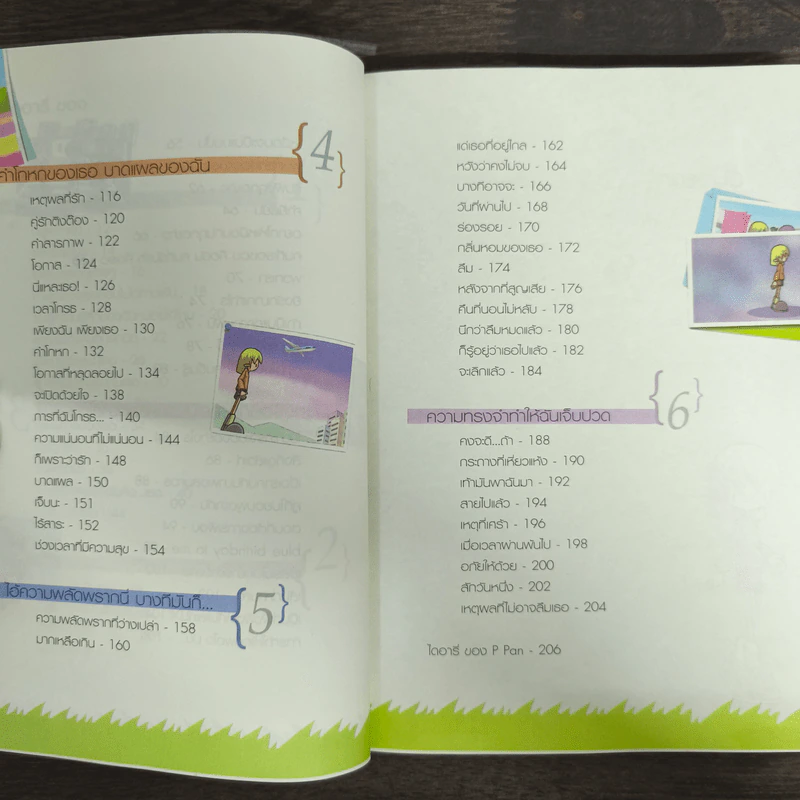 คำโกหกของเธอ บาดแผลของฉัน
{4}
เหตุผลที่รัก - 116
คู่รักติงต๊อง - 120
คำสารภาพ - 122
โอกาส - 124
นี่แหละเธอ! - 126
เวลาโกรธ - 128
เพียงฉัน เพียงเธอ - 130
คำโกหก - 132
โอกาสที่หลุดลอยไป - 134
จะเปิดด้วยใจ - 138
การที่ฉันโกรธ... - 140
ความแน่นอนที่ไม่แน่นอน - 144
ก็เพราะว่ารัก - 148
บาดแผล - 150
เจ็บนะ - 151
ไร้สาระ - 152
ช่วงเวลาที่มีความสุข - 154
ไอ้ความพลัดพรากนี่ บางทีมันก็...
{5}
ความพลัดพรากที่ว่างเปล่า - 158
มากเหลือเกิน - 160
แด่เธอที่อยู่ไกล - 162
หวังว่าคงไม่จบ - 164
บางทีอาจจะ - 166
วันที่ผ่านไป - 168
ร่องรอย - 170
กลิ่นหอมของเธอ - 172
ลืม - 174
หลังจากที่สูญเสีย - 176
คืนที่นอนไม่หลับ - 178
นึกว่าลืมหมดแล้ว - 180
ก็รู้อยู่ว่าเธอไปแล้ว - 182
จะเลิกแล้ว - 184
ความทรงจำทำให้ฉันเจ็บปวด
{6}
คงจะดี...ถ้า - 188
กระถางที่เหี่ยวแห้ง - 190
เท้ามันพาฉันมา - 192
สายไปแล้ว - 194
เหตุที่เศร้า - 196
เมื่อเวลาผ่านพ้นไป - 198
อภัยให้ด้วย - 200
สักวันหนึ่ง - 202
เหตุผลที่ไม่อาจลืมเธอ - 204
ไดอารี่ ของ P Pan - 206